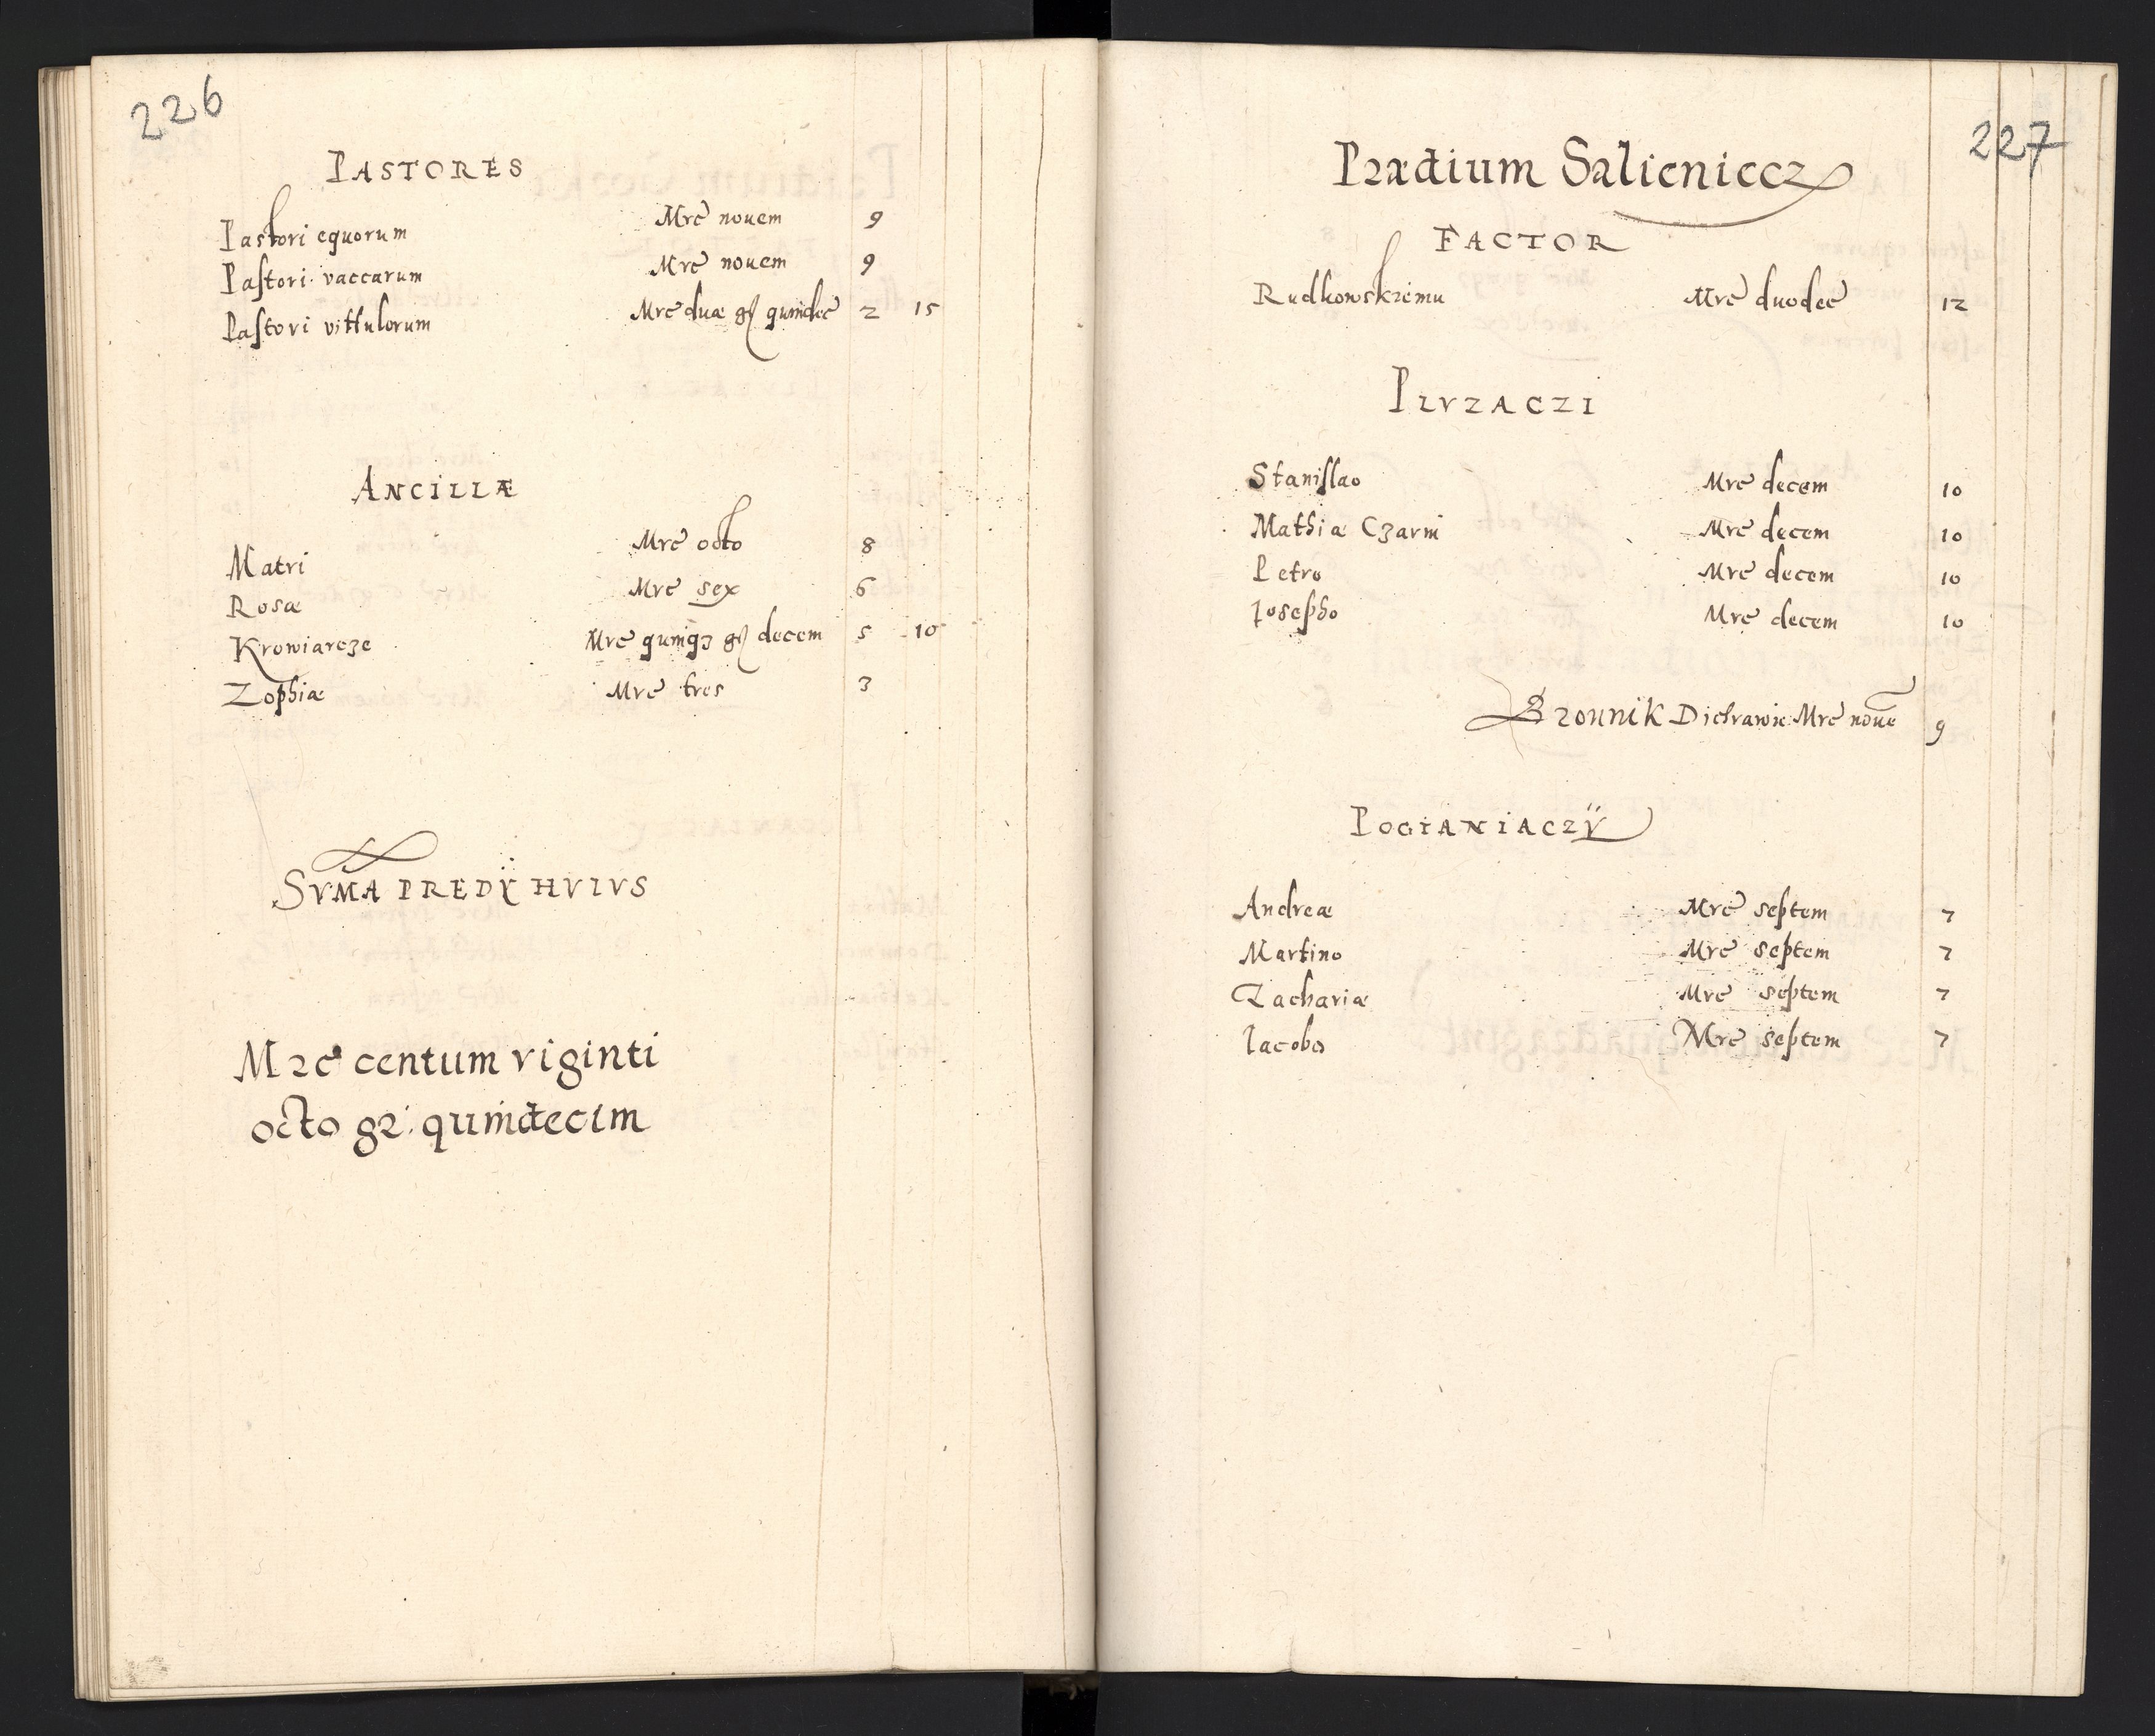 226
PASTORES
Pastori equorum Mrc̃ nouem 9
Pastori vaccarum Mrc̃ nouem 9
Pastori vithulorum Mrc̃ duæ gſ quindec̃ 2 15
ANCILLÆ
Matri Mrc̃ octo 8
Rosæ Mrc̃ sex 6
Krowiarcze Mrc̃ quinqꝫ gſ decem 5 10
Zophiæ Mrc̃ tres 3
SVMA PREDŸ HVIVS
Mrc̃ centum viginti
octo gr: quindecim
227
Prædium Salieniecz
FACTOR
Rudkowskiemu Mrc̃ duodec̃ 12
PLVZACZI
Stanislao Mrc̃ decem 10
Mathiæ Czarni Mrc̃ decem 10
Petro Mrc̃ decem 10
Iosepho Mrc̃ decem 10
Bronnik Mrc̃ noue͂ 9
POGIANIACZŸ
Andreæ Mrc̃ septem 7
Martino Mrc̃ septem 7
Zachariæ Mrc̃ septem 7
Iacobo Mrc̃ septem 7